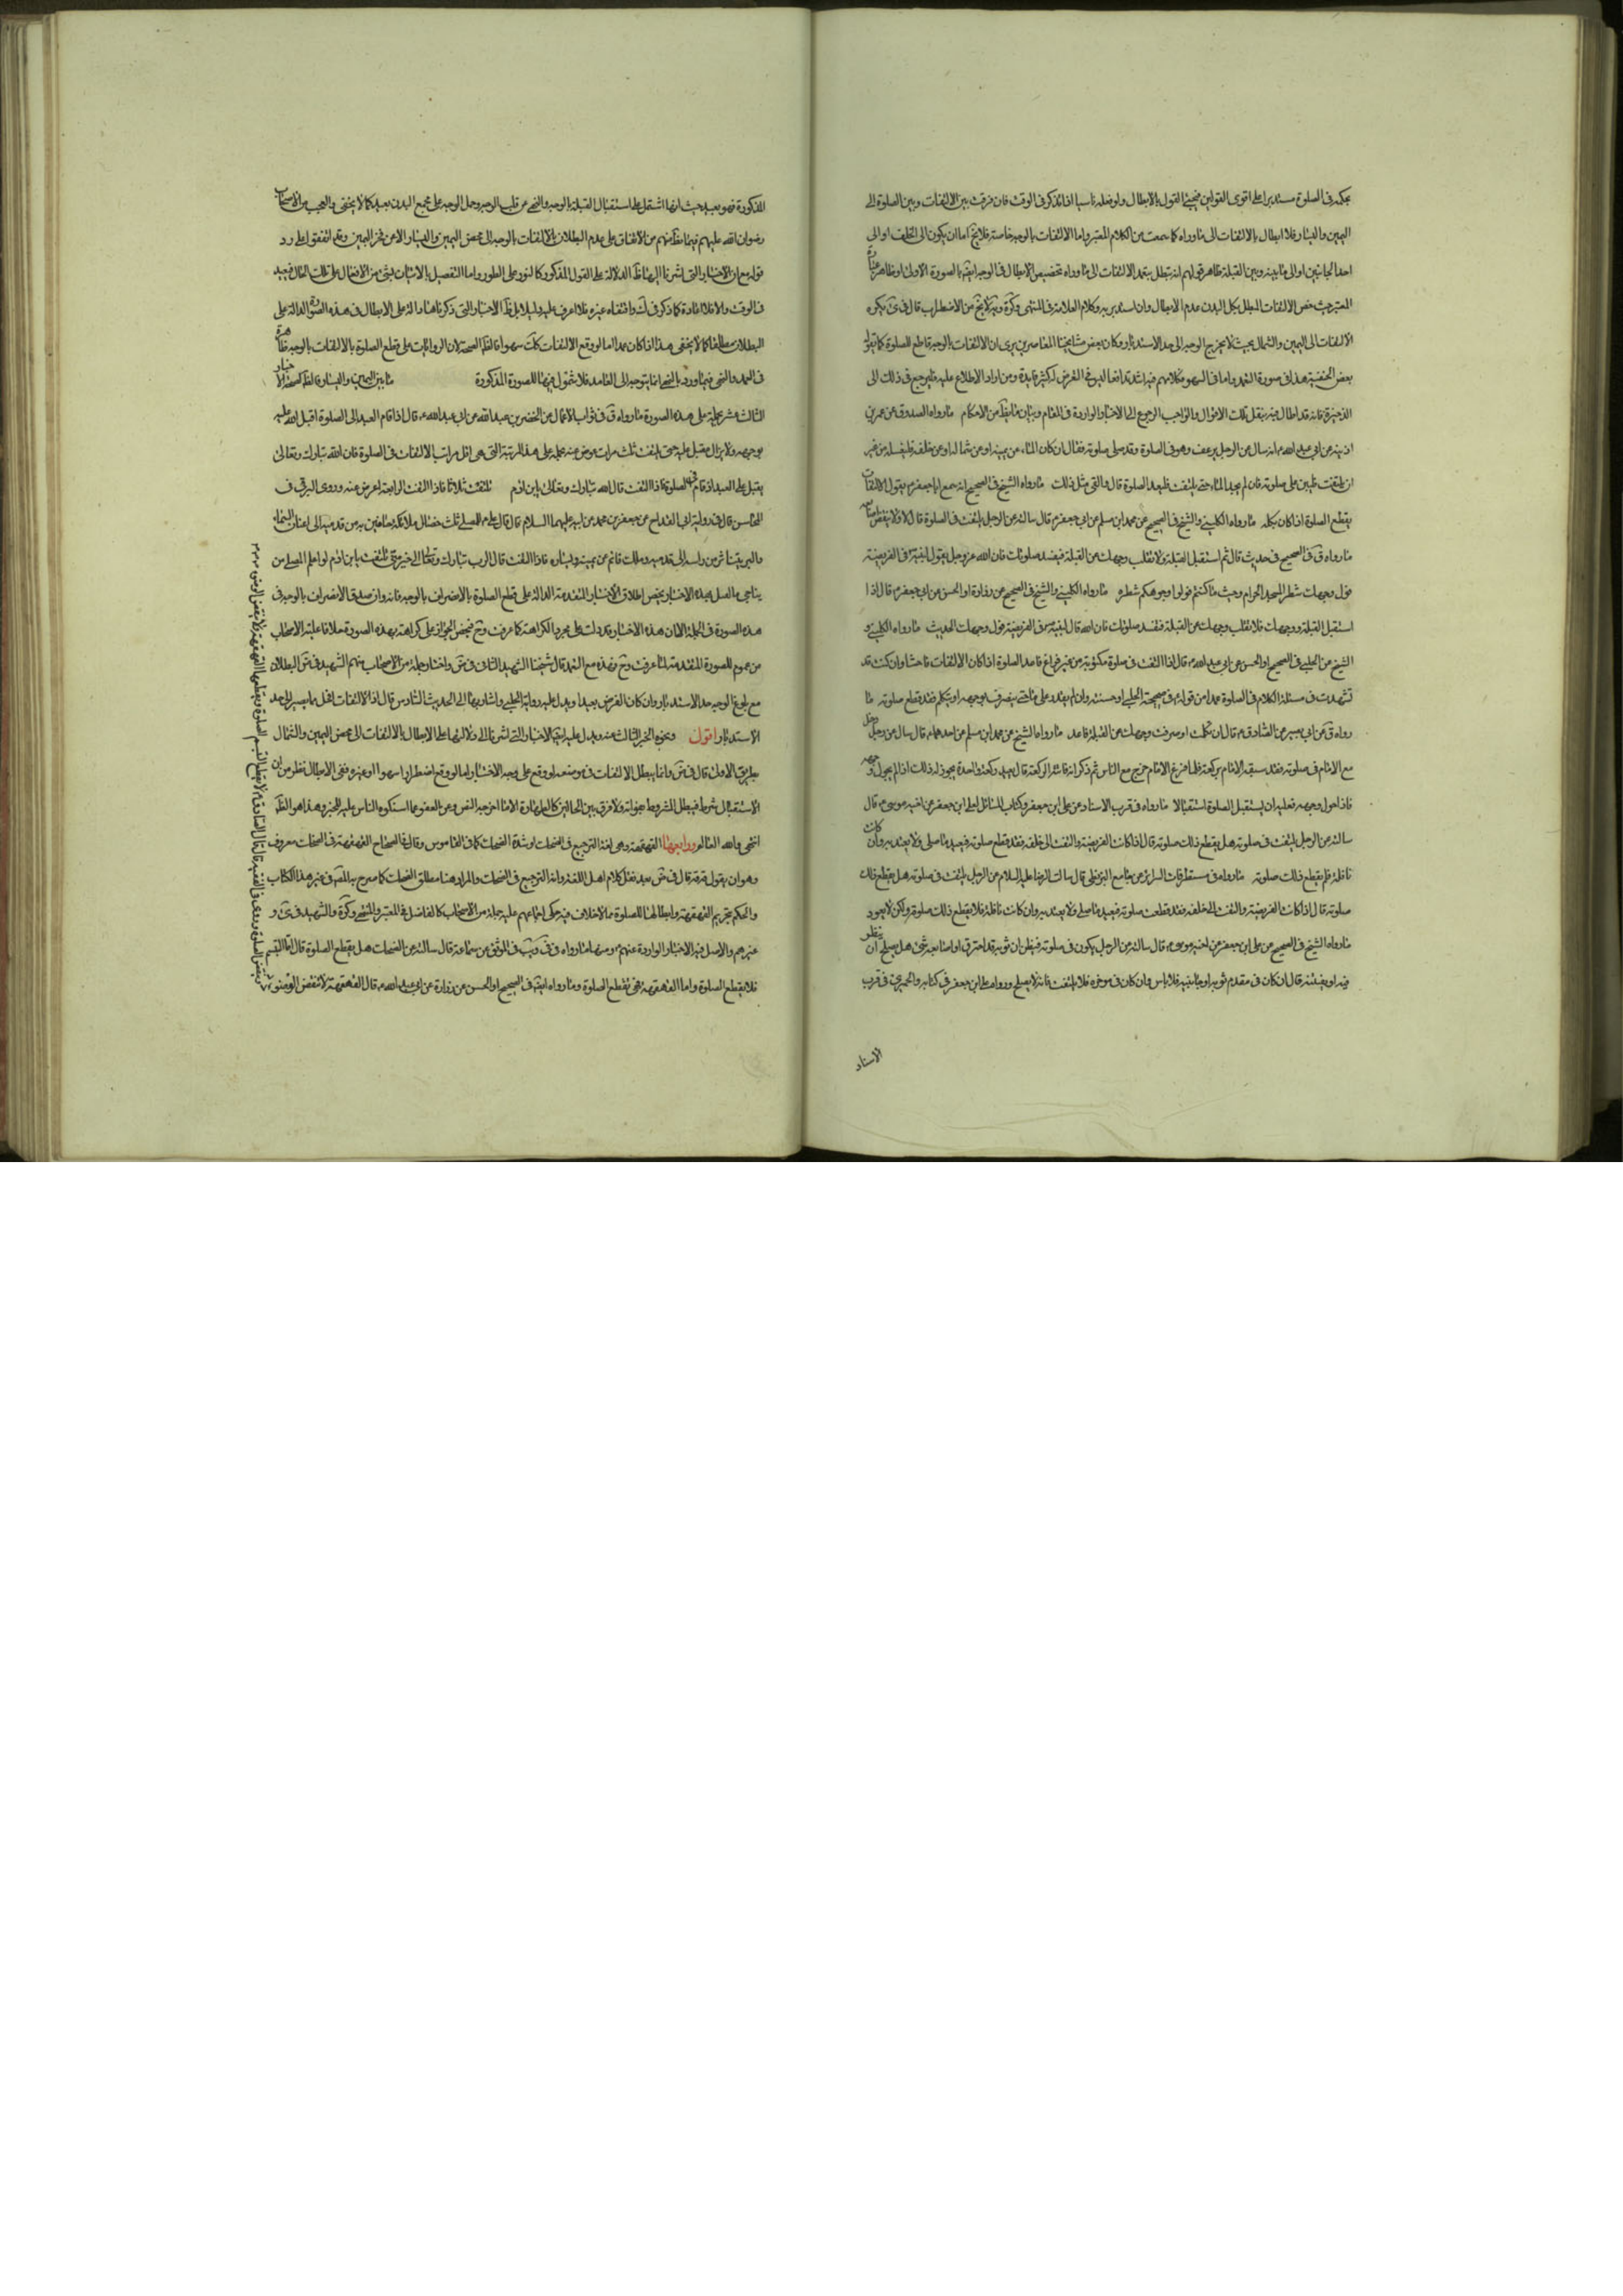 بحكمه في الصلوة مستدبرا على اقوى القولين فيجئ القول بالابطال ولو فعله ناسيا اذا تذكر في الوقت فان فرقت بين الالتفات وبين الصلوة الى
اليمين واليسار فلا ابطال بالالتفات الى ما وراه كما سمعت من الكلام المعتبر واما الالتفات بالوجه خاصة فلا يخ اما ان يكون الى الخلف او الى
احد الجانبين او الى ما بينه وبين القبلة ظاهر قولهم انه تبطل بتعمد الالتفات الى ما وراه تخصيص الابطال في الوجه ايض بالصورة الاولى وظاهر عبارة
المعتبر حيث خص الالتفات المبطل بكل البدن عدم الابطال وان استدبر به وكلام العلامة في المنتهى وكرة ويه لا يخ من الاضطراب قال في ئ يكره
الالتفات الى اليمين والشمال بحيث لا يخرج الوجه الى حد الاستدبار وكان بعض مشايخنا المعاصرين يرى ان الالتفات بالوجه قاطع للصلوة كما يقوله
بعض الحنفية هذا في صورة التعمد واما في السهو فكلامهم فيه اشد تدافعا ليس في الغرض لكثير فايدة ومن اراد الاطلاع عليه فليرجع في ذلك الى
الذخيرة فانه قد اطال فيه بنقل تلك الاقوال والواجب الرجوع الى الاخبار الواردة في المقام وبيان ما يظ من الاحكام ما رواه الصدوق عن عمر بن
اذينة عن ابي عبد الله ع انه سال عن الرجل يرعف وهو في الصلوة وقد صلى بعض صلوته فقال ان كان الماء عن يمينه او عن شماله او عن خلفه فليغسله من غير
ان يلتفت وليبن على صلوته فان لم يجد الماء حتى يلتفت فليعد الصلوة قال والقئ مثل ذلك ما رواه الشيخ في الصحيح انه سمع ابا جعفر ع يقول الالتفات
يقطع الصلوة اذا كان بكله ما رواه الكليني والشيخ في الصحيح عن محمد ابن مسلم عن ابي جعفر ع قال سالته عن الرجل يلتفت في الصلوة قال لا ولا ينقض اصابعه
ما رواه ق في الصحيح في حديث قال ثم استقبل القبلة ولا تقلب وجهك عن القبلة فيفسد صلوتك فان الله عز وجل يقول لنبيه في الفريضة
فول وجهك شطر المسجد الحرام وحيث ما كنتم فولوا وجوهكم شطره ما رواه الكليني والشيخ في الصحيح عن زرارة او الحسن عن ابي جعفر ع قال اذا
استقبل القبلة ووجهك فلا تقلب وجهك عن القبلة فتفسد صلوتك فان الله قال لنبيه ص في الفريضة فول وجهك الحديث ما رواه الكليني و
الشيخ عن الحلبي في الصحيح او الحسن عن ابي عبد الله ع قال اذا التفت في صلوة مكتوبة من غير فراغ فاعد الصلوة اذا كان الالتفات فاحشا وان كنت قد
تشهدت في مسئلة الكلام في الصلوة عمدا من قوله ع في صحيحة الحلبي او حسنته وان لم يقدر على ماء حتى ينصرف بوجهه او يتكلم فقد قطع صلوته ما
رواه ق عن ابي بصير عن الصادق ع قال ان تكلمت او صرفت وجهك عن القبلة فاعد ما رواه الشيخ عن محمد ابن مسلم عن احدهما ع قال سال عن رجل دخل
مع الامام في صلوته وقد سبقه الامام بركعة فلما فرغ الامام خرج مع الناس ثم ذكر انه فاتته الركعة قال يعيد ركعة واحدة يجوز له ذلك اذا لم يحول وجهه
فاذا حول وجهه فعليه ان يستقبل الصلوة استقبالا ما رواه في قرب الاسناد عن علي ابن جعفر وكتاب المسائل لعلي ابن جعفر عن اخيه موسى ع قال
سالته عن الرجل يلتفت في صلوته هل يقطع ذلك صلوته قال اذا كانت الفريضة والتفت الى خلفه فقد قطع صلوته فيعيد ما صلى ولا يعتد به وان كانت
نافلة فلم يقطع ذلك صلوته ما رواه في مستطرفات السرائر عن جامع البزنطي قال سالت الرضا عليه السلام عن الرجل يلتفت في صلوته هل يقطع ذلك
صلوته قال اذا كانت الفريضة والتفت الى خلفه فقد قطعت صلوته فيعيد ما صلى ولا يعتد به وان كانت نافلة فلا يقطع ذلك صلوته ولكن لا يعود
ما رواه الشيخ في الصحيح عن علي ابن جعفر عن اخيه موسى ع قال سالته عن الرجل يكون في صلوته فيظن ان ثوبه قد احترق او اصابه شئ هل يصلح ان ينظر
فيه او يفتشه قال ان كان في مقدم ثوبه او جانبيه فلا باس وان كان في موخره فلا يلتفت فانه لا يصلح ورواه علي ابن جعفر في كتابه والحميري في قرب
الاسناد
المذكورة فهو بعيد حيث انها اشتمل على استقبال القبلة بالوجه والنهي عن قلب الوجه وحمل الوجه على مجمع البدن بعيد كما لا يخفى والعجب من الاصحاب
رضوان الله عليهم فيما يظ منهم من الاتفاق على عدم البطلان بالالتفات بالوجه الى محض اليمين واليسار الا عن فخر المحققين وقد اتفقوا على رد
قوله مع ان الاخبار التي اشرنا اليها ظ الدلالة على القول المذكور كالنور على الطور واما التفصيل بالاتيان بشئ من الافعال على تلك الحال فيعيد
في الوقت والا فلا اعادة كما ذكر في ك واقتفاه غيره فلا اعرف عليه دليلا بل ظ الاخبار التي ذكرناها دالة على الابطال في هذه الصورة الدالة على
البطلان مطلقا كما لا يخفى هذا اذا كان عمدا اما لو وقع الالتفات كك سهوا فالظ الصحة لان الروايات على قطع الصلوة بالالتفات بالوجه ظاهرة
في العمد والنهي فيما ورد بالنهي انما يتوجه الى العامد فلا شمول فيها للصورة المذكورة ما بين اليمين واليسار والظ الصحة للاخبار
الثالث عشر يحمله على هذه الصورة ما رواه ق في ثواب الاعمال عن الخضر بن عبد الله عن ابي عبد الله ع قال اذا قام العبد الى الصلوة اقبل الله عليه
بوجهه ولا يزال مقبلا عليه حتى يلتفت ثلث مرات فاذا التفت ثلث مرات اعرض عنه يحمله على هذه المرتبة التي هي اقل مراتب الالتفات في الصلوة فان الله تبارك وتعالى
يقبل على العبد اذا قام في الصلوة فاذا التفت قال الله تبارك وتعالى يابن ادم تلتفت ثلاثا فاذا التفت الرابعة اعرض عنه وروى البرقي في
المحاسن قال في رواية ابي القداح عن جعفر بن محمد عن ابيه عليهما السلام قال قال علي ع للمصلي ثلث خصال ملائكة حافين به من قدميه الى اعنان السماء
والبر يتناثر من راسه الى قدميه وملك قائم عن يمينه ويساره فاذا التفت قال الرب تبارك وتعالى الى خير مني تلتفت يابن ادم لو اعلم المصلي من
يناجي ما انفتل بهذه الاخبار يخص اطلاق الاخبار المتقدمة الدالة على قطع الصلوة بالانصراف بالوجه فانه وان صدق الانصراف بالوجه في
هذه الصورة في الجملة الا ان هذه الاخبار قد دلت على مجرد الكراهة كما عرفت وح فيخص الجواز على كراهة بهذه الصورة خلافا لما عليه الاصحاب
من عموم للصورة المتقدمة لما عرفت وح وهذه مع التعمد قال شيخنا الشهيد الثاني في ض واختار جملة من الاصحاب منهم الشهيد في ض البطلان
مع بلوغ الوجه حد الاستدبار وان كان الفرض بعيدا ويدل عليه رواية الحلبي واشار بها الى الحديث السادس قال اذ الالتفات اقل ما يصير الى حد
الاستدبار اقول ونحوه الخبر الثالث عنه ويدل عليه ايض الاخبار التي اشرنا الى دلالتها على الابطال بالالتفات الى محض اليمين والشمال
بطريق الاولى قال في ض وانما يبطل الالتفات في موضعه لو وقع على وجه الاختيار اما لو وقع اضطرارا سهوا او غيره ففي الابطال نظر من ان
الاستقبال شرط فيبطل المشروط بفواته ولا فرق بين الحالين كالطهارة الا ما اخرجه النص وعن العفو عما استكره الناس عليه للخبر وهذا هو الظ
انتهى والله العالم ورابعها القهقهة وهي لغة الترجيع في الضحك او شدة الضحك كما في القاموس وقال في الصحاح القهقهة في الضحك معروف
وهو ان يقول قه قه قال في ض بعد نقل كلام اهل اللغة وانه الترجيع في الضحك والمراد هنا مطلق الضحك كما صرح به المص في غير هذا الكتاب
والحكم بتحريم القهقهة وابطالها للصلوة مما لا خلاف فيه حكى اجماعهم عليه جملة من الاصحاب كالفاضل في المعتبر والمنتهى وكرة والشهيد في ئ و
غيرهم والاصل فيه الاخبار الواردة عنهم ع ومنها ما رواه في في ويب في الموثق عن سماعة قال سالته عن الضحك هل يقطع الصلوة قال اما التبسم
فلا يقطع الصلوة واما القهقهة فهي تقطع الصلوة وما رواه ايض في الصحيح او الحسن عن زرارة عن ابي عبد الله ع قال القهقهة لا تنقض الوضوء
وتنقض الصلوة وروى في الفقيه قال قال الصادق ع لا يقطع التبسم الصلوة ويقطعها القهقهة ولا تنقض الوضوء